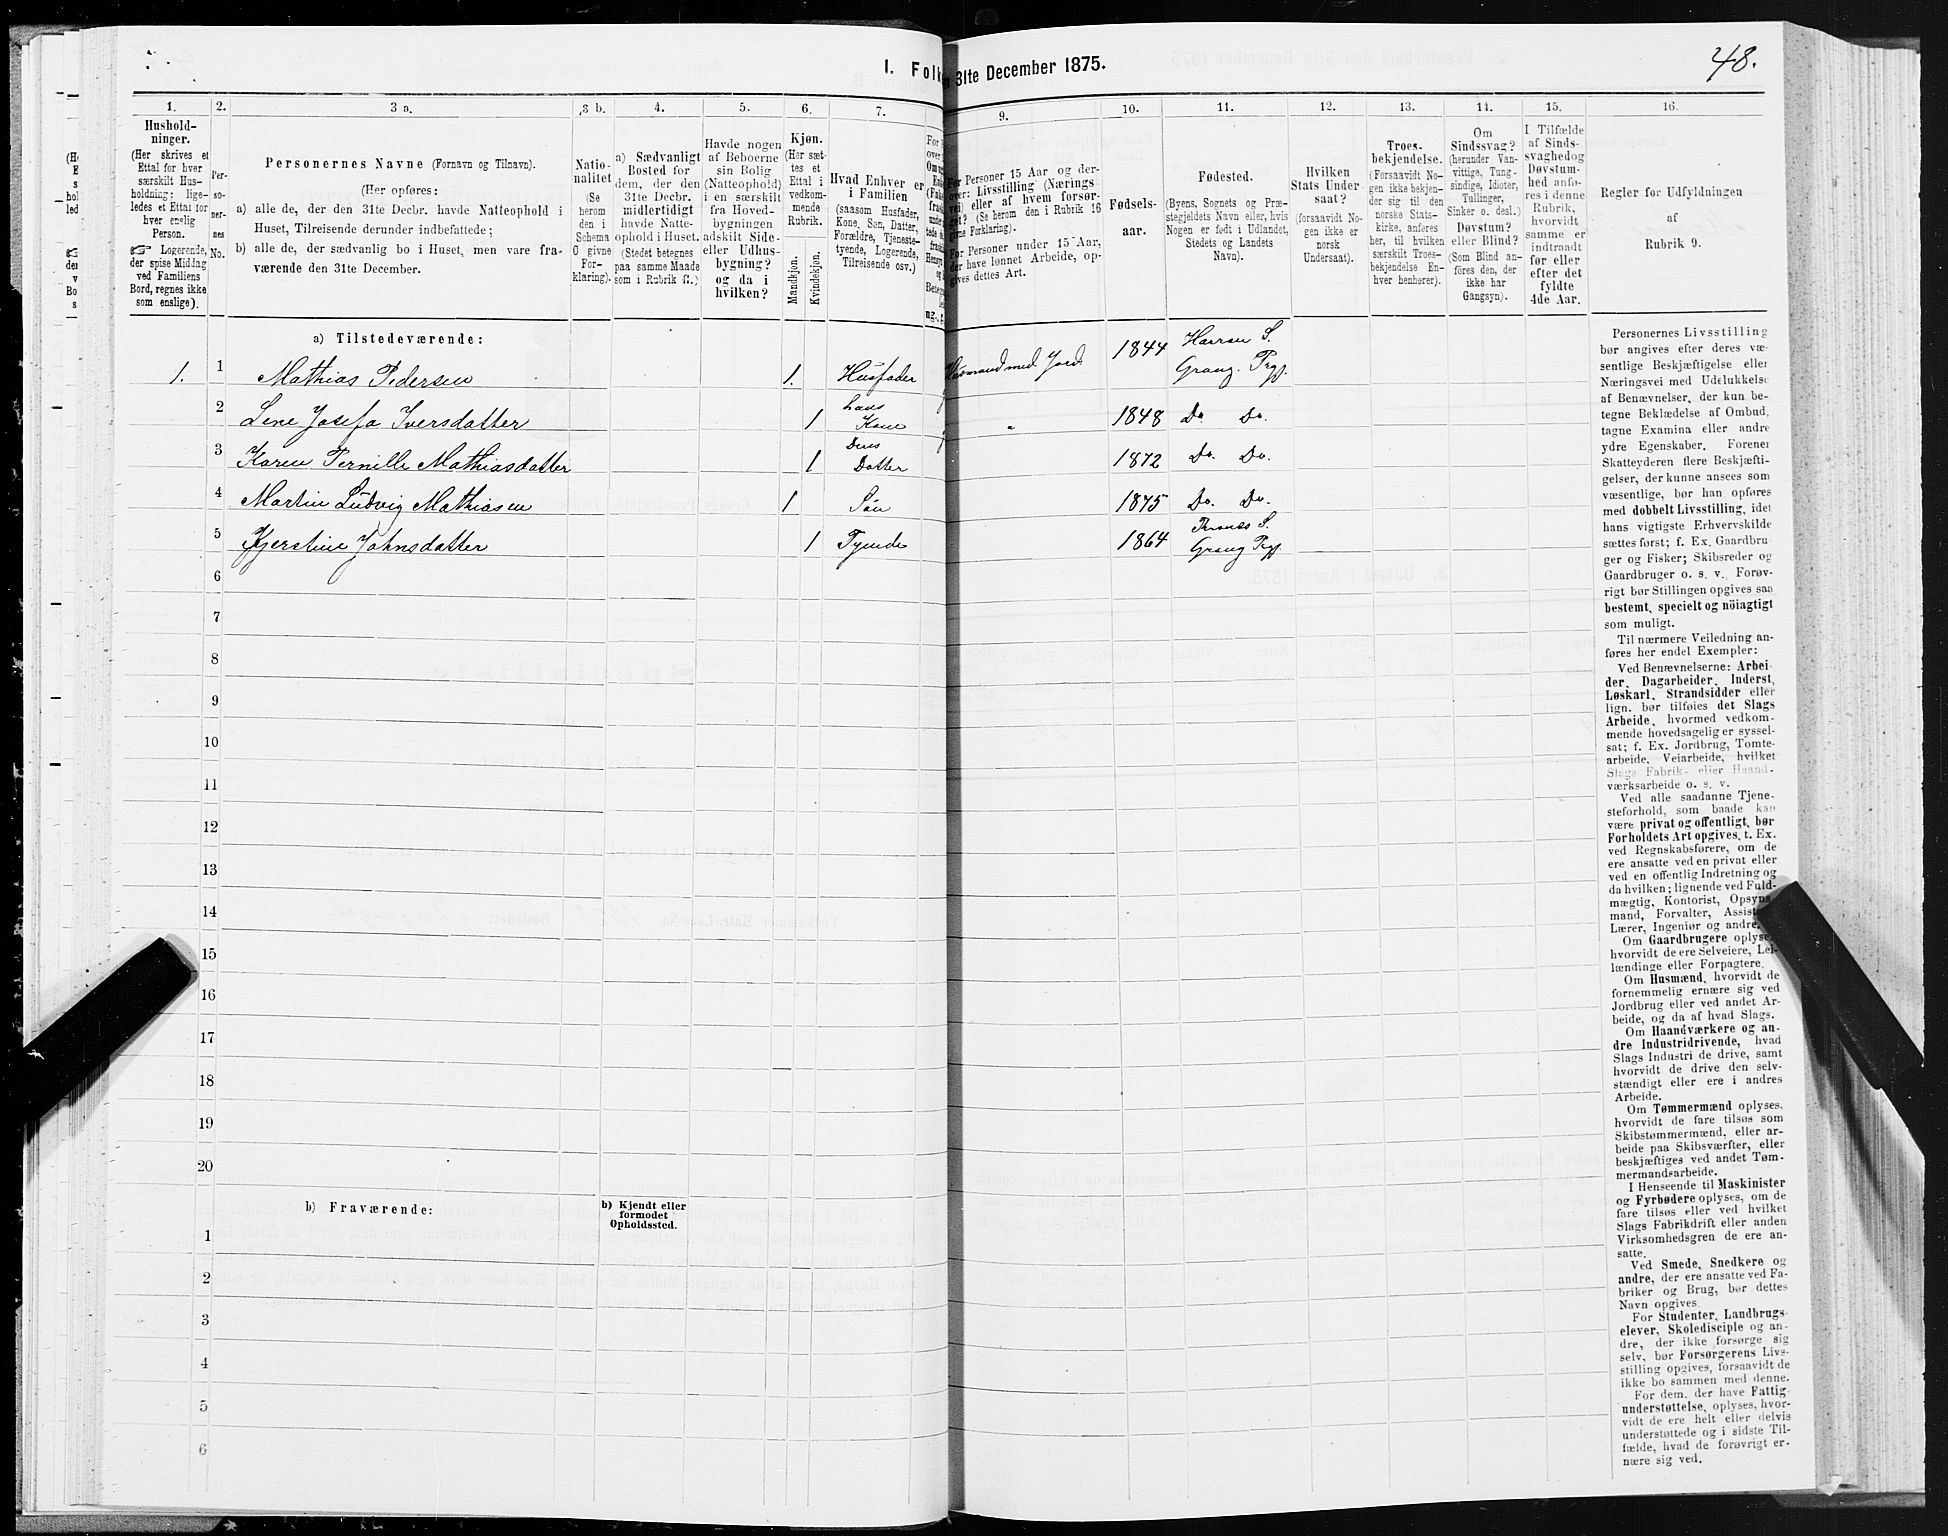 1. Folk
31te December 1875.
48.
1.
2.
3 a.
3 b.
4.
5.
6.
7.
9.
10.
11.
12.
13.
14.
15.
16.
Hushold-
ninger.
(Her skrives et
Ettal for hver
særskilt Hus-
holdning; lige-
ledes et Ettal for
hver enslig
Person.
☞ Logerende,
der spise Middag
ved Familiens
Bord, regnes ikke
som enslige).
Per-
so-
ner-
nes
No.
Personernes Navne (Fornavn og Tilnavn).
(Her opføres:
a) alle de, der den 31te Decbr. havde Natteophold i
Huset, Tilreisende derunder indbefattede;
b) alle de, der sædvanlig bo i Huset, men vare fra-
værende den 31te December.
Natio-
nalitet
(Se
herom
den i
Schema
0 givne
For-
klaring).
a) Sædvanligt
Bosted for
dem, der den
31te Decbr.
midlertidigt
havde Natte-
ophold i Huset.
(Stedet betegnes
paa samme Maade
som i Rubrik 11.)
Havde nogen
af Beboerne
sin Bolig
(Natteophold)
i en særskilt
fra Hoved-
bygningen
adskilt Side-
eller Udhus-
bygning?
og da i
hvilken?
Kjøn.
(Her sæt-
tes et
Ettal i
vedkom-
mende
Rubrik.
Mandkjøn.
Kvindekjøn.
Hvad Enhver er
i Familien
(saasom Husfader,
Kone, Søn, Datter,
Forældre, Tjeneste-
tyende, Logerende,
Tilreisende osv.)
For Personer 15 Aar og der-
over: Livsstilling (Nærings-
vei) eller af hvem forsør-
get? (Se herom den i Rubrik 16
givne Forklaring).
For Personer under 15 Aar,
der have lønnet Arbeide, op-
gives dettes Art.
Fødsels-
aar.
Fødested.
(Byens, Sognets og Præ-
stegjeldets Navn eller, hvis
Nogen er født i Udlandet,
Stedets og Landets
Navn).
Hvilken
Stats Under-
saat?
(forsaavidt No-
gen ikke er
norsk
Undersaat).
Troes-
bekjendelse.
(Forsaavidt No-
gen ikke bekjen-
der sig til den
norske Stats-
kirke, anføres
her, til hvilken
særskilt Troes-
bekjendelse En-
hver henhører).
Om
Sindssvag?
(herunder Van-
vittige, Tung-
sindige, Idioter,
Tullinger,
Sinker o. desl.)
Døvstum?
eller Blind?
(Som Blind an-
føres den, der
ikke har
Gangsyn).
I Tilfælde
af Sinds-
svaghed og
Døvstum-
hed anfø-
res i denne
Rubrik,
hvorvidt
samme er
indtraadt
før eller
efter det
fyldte
4de Aar.
Regler for Udfyldningen
af
Rubrik 9.
a) Tilstedeværende:
1. 1 Mathias Pedersen 1. Husfader Husmand med Jord. 1844 Harran S.
Grong. Prgj.
2 Lene Josefa Iversdatter 1 hans
Kone " 1848 Do. Do.
3 Karen Pernille Mathiasdatter 1 Deres
Datter 1872 Do. Do.
4 Martin Ludvig Mathiasen 1 Søn 1875 Do. Do.
5 Kjerstine Johnsdatter 1 Tyende 1864 Thranæs S.
Grong Prgj.
6
7
8
9
10
11
12
13
14
15
16
17
18
19
20
b) Fraværende:
b) Kjendt eller
formodet
Opholdssted.
1
2
3
4
5
6
Personernes Livsstilling
bør angives efter deres væ-
sentlige Beskjæftigelse eller
Næringsvei med Udelukkelse
af Benævnelser, der kun be-
tegne Beklædelse af Ombud,
tagne Examina eller andre
ydre Egenskaber. Forener
Skatteyderen flere Beskjæfti-
gelser, der kunne ansees som
væsentlige, bør han opføres
med dobbelt Livsstilling, idet
hans vigtigste Erhvervskilde
sættes først; f. Ex. Gaardbru-
ger og Fisker; Skibsreder og
Gaardbruger o. s. v. Forøv-
rigt bør Stillingen opgives saa
bestemt, specielt og nöiagtigt
som muligt.
Til nærmere Veiledning an-
føres her endel Exempler:
Ved Benævnelserne: Arbei-
der, Dagarbeider, Inderst,
Løskarl, Strandsidder eller
lign. bør tilføies det Slags
Arbeide, hvormed vedkom-
mende hovedsagelig er syssel-
sat; f. Ex. Jordbrug, Tomte-
arbeide, Veiarbeide, hvilket
Slags Fabrik- eller Haand-
værksarbeide o. s. v.
Ved alle saadanne Tjene-
steforhold, som baade kan
være privat og offentligt, bør
Forholdets Art opgives, t. Ex.
ved Regnskabsførere, om de
ere ansatte ved en privat eller
ved en offentlig Indretning og
da hvilken; lignende ved Fuld-
mægtig, Kontorist, Opsyns-
mand, Forvalter, Assistent,
Lærer, Ingeniør og andre.
Om Gaardbrugere oplyses,
hvorvidt de ere Selveiere, Lei-
lændinge eller Forpagtere.
Om Husmænd, hvorvidt de
fornemmelig ernære sig ved
Jordbrug eller ved andet Ar-
beide, og da af hvad Slags.
Om Haandværkere og an-
dre Industridrivende, hvad
Slags Industri de drive, samt
hvorvidt de drive den selv-
stændigt eller ere i andres
Arbeide.
Om Tømmermænd oplyses,
hvorvidt de fare tilsøs som
Skibstømmermænd, eller ar-
beide paa Skibsværfter, eller
beskjæftiges ved andet Tøm-
mermandsarbeide.
I Henseende til Maskinister
og Fyrbødere oplyses, om de
fare tilsøs eller ved hvilket
Slags Fabrikdrift eller anden
Virksomhedsgren de ere an-
satte.
Ved Smede, Snedkere og
andre, der ere ansatte ved Fa-
briker og Brug, bør dettes
Navn opgives.
For Studenter, Landbrugs-
elever, Skoledisciple og an-
dre, der ikke forsørge sig
selv, bør Forsørgerens Livs-
stilling opgives, forsaavidt de
ikke bo sammen med denne.
For dem, der have Fattig-
understøttelse, oplyses, hvor-
vidt de ere helt eller delvis
understøttede og i sidste Til-
fælde, hvad de forøvrigt er-
nære sig ved.